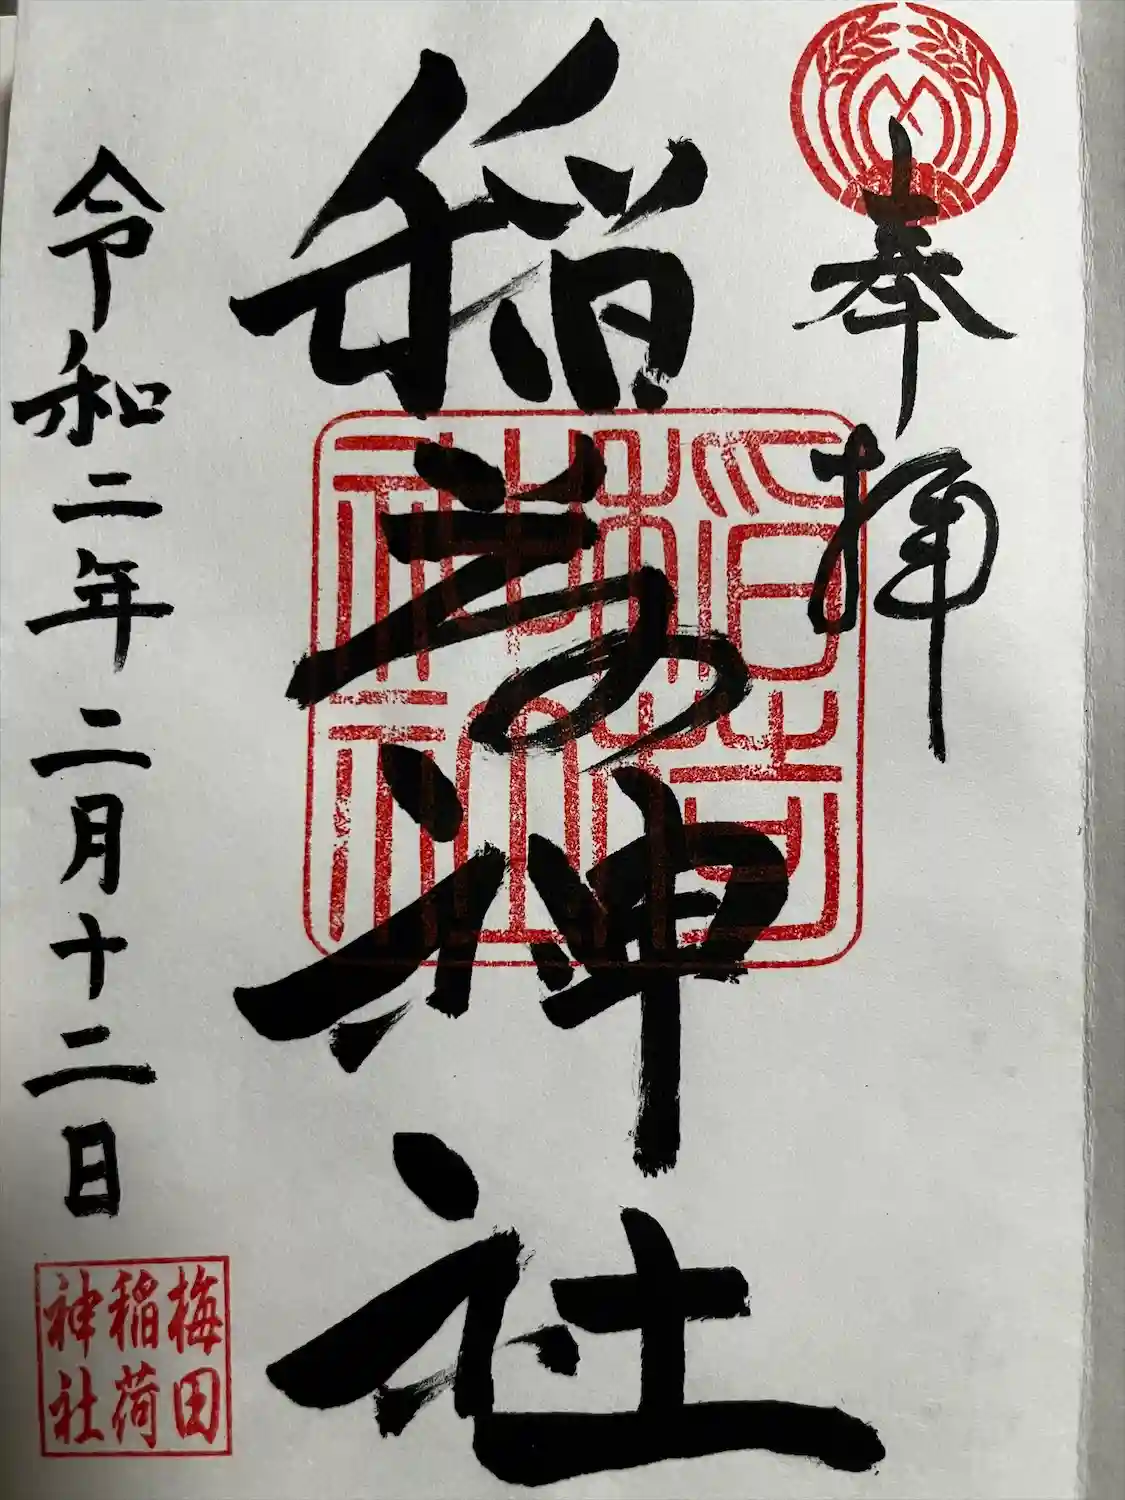 奉拝
稲荷神社
稲荷
神社
令和二年二月十二日
梅田
稲荷
神社